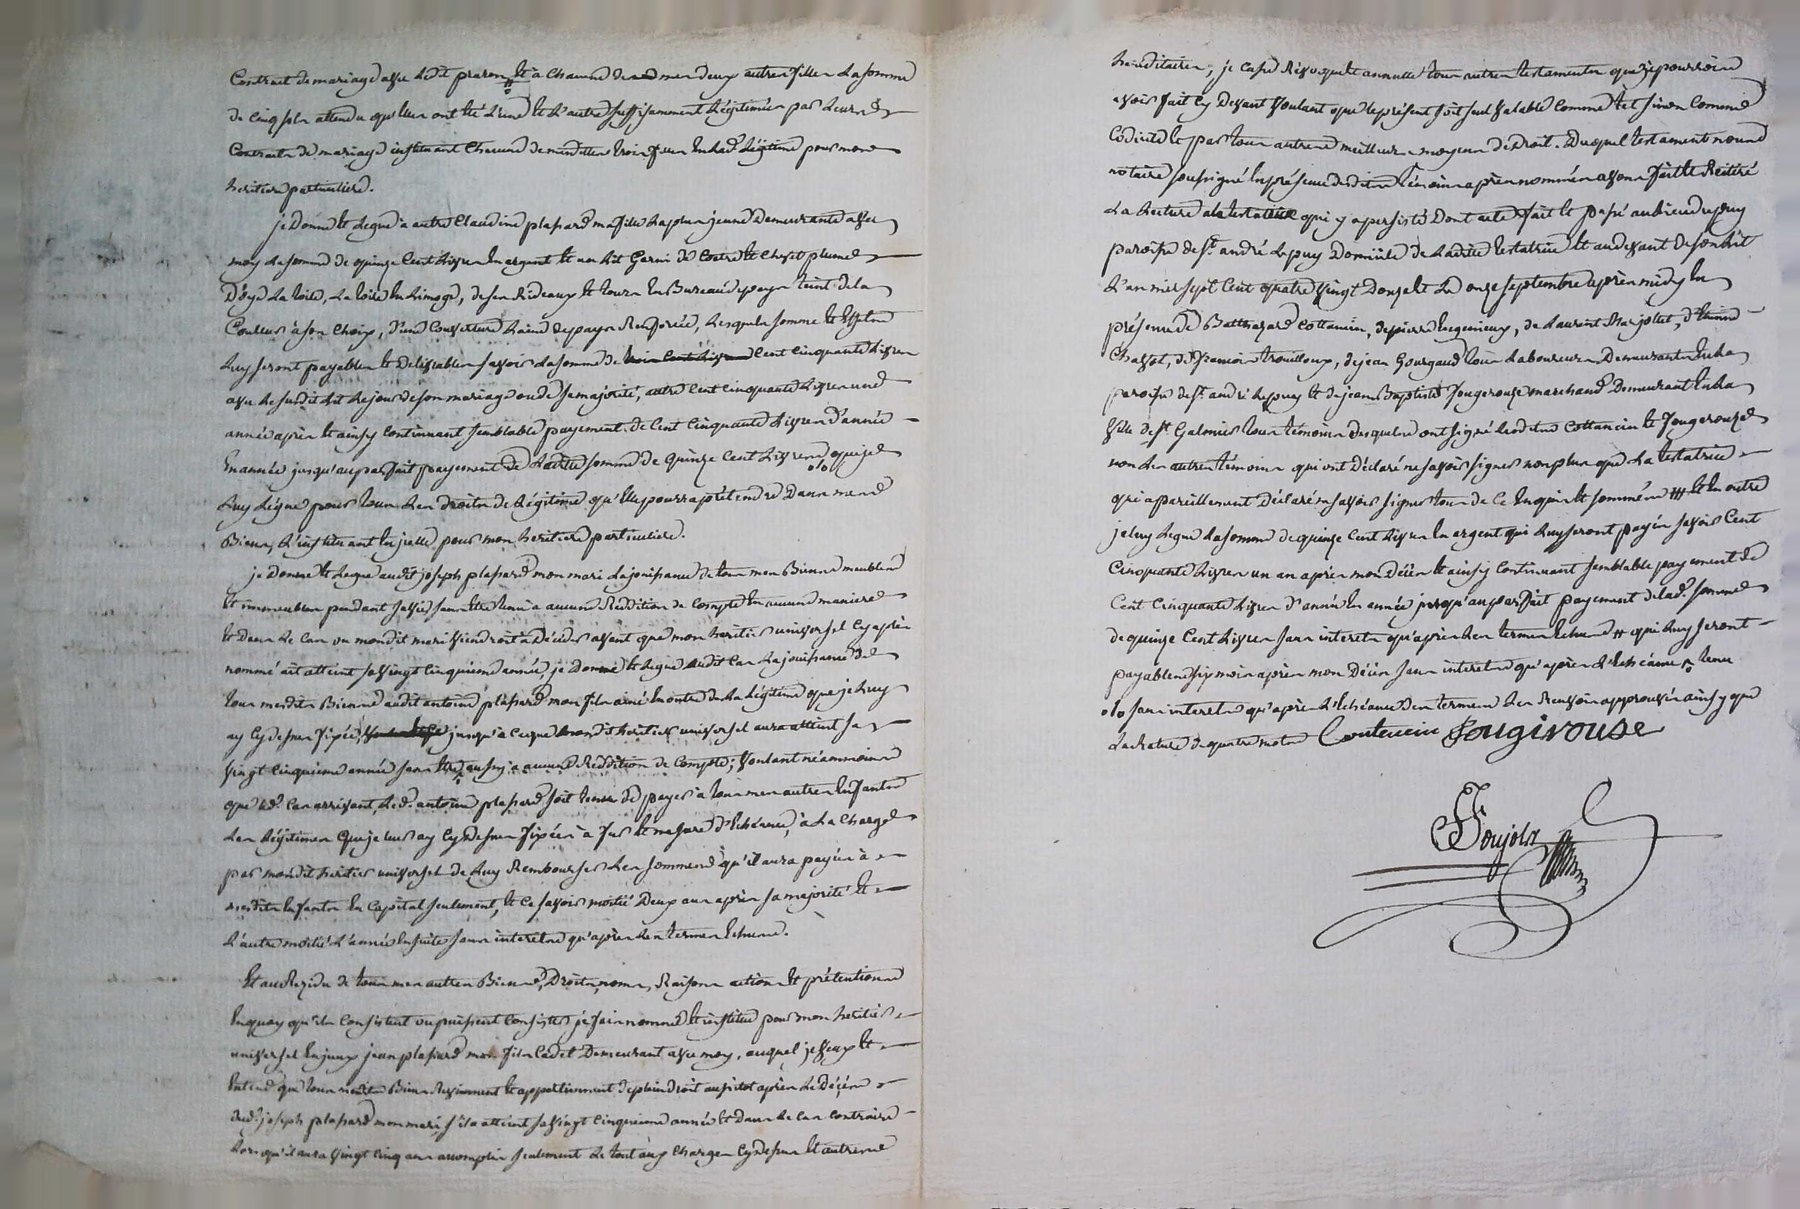 Contract de mariage avec ledit praron # et a chacune de mes deux autres filles la somme
de cinq sols attendu qu'elles ont été l'une et l'autre suffisamment légitimées par leurs
Contracts de mariage instituant chacune de mesdites trois filles en lad. légitime pour mes
heritieres particulieres.
je donne et legue à autre Claudine plassard ma fille la plus jeune demeurante avec
moy la somme de quinze cent livres en argent et un lit garni de coetre et chevet plume
d'oye la toile, la toile en limoge, de ses rideaux et tours en Bureau de pays teint de la
Couleur à son choix, d'une couverture laine de pays renforcée, lesquels somme et effets
luy seront payables et delivrables savoir la somme de cent cinquante livres
avec le susdit lit le jour de son mariage ou de sa majorité, autre cent cinquante livres une
année après et ainsy continuant semblable payement de cent cinquante livres d'année
en année jusqu'au parfait payement de ladite somme de quinze cent livres o/o que je
luy légue pour tous les droits de légitime qu'elle pourra prétendre dans mes
Biens, l'instituant en icelle pour mon heritiere particuliere.
je donne et legue audit joseph plassard mon mari la jouissance de tous mes Biens meubles
et immeubles pendant sa vie sans être tenu à aucune reddition de compte en aucune maniere
et dans le cas ou mondit mari viendroit à décéder avant que mon heritier universel cy après
nommé ait atteint sa vingt cinquieme année, je donne et legue audit cas la jouissance de
tous mesdits Biens audit antoine plassard mon fils ainé en outre de la légitime que je luy
ay cy dessus fixée, jusqu'à ce que mondit heritier universel aura atteint sa
vingt cinquieme année sans être aussy a aucune reddition de compte; voulant néanmoins
que led. cas arrivant, led. antoine plassard soit tenu de payer à tous mes autres enfants
les légitimes que je leur ay cy dessus fixées à fur et mesure d'échéance, à la charge
par mondit heritier universel de luy rembourser les sommes qu'il aura payées à
mesdits enfants en capital seulement, et ce savoir moitié deux ans après sa majorité et
l'autre moitié l'année ensuite sans interets qu'après les termes echus.
Et au Rezidu de tous mes autres Biens, droits, noms, Raisons actions et prétentions
en quoy qu'ils consistent ou puissent consister je fais nomme et institue pour mon heritier
universel jean plassard mon fils cadet demeurant avec moy, auquel je veux et
entend que tous mesdits Biens reviennent et appartiennent de plein droit aussitot après le décès
dud. joseph plassard mon mari, s'il a atteint sa vingt cinquieme année et dans le cas contraire
lorsqu'il aura vingt cinq ans accomplis seulement le tout aux charges cy dessus et autres
héréditaires; je casse Révoque et annulle tous autres testaments que je pourrois
avoir fait cy devant voulant que le présent soit seul valable comme tel sinon comme
Codicile et par tous autres meilleurs moyens de droit. Duquel testament nous
notaire soussigné en présence desdits témoins après nommés avons fait et réitéré
la lecture a la testatrice qui y a persisté dont acte fait et passé au lieu du puy
paroisse de St. andré le puy domicile de ladite testatrice et au devant de son lit
l'an mil sept cent quatre vingt douze et le onze septembre après midy en
présence de Balthazard Cottancin, de pierre begonieux, de Laurent Marjollet, d'Etienne
Chazot, de francois trouilloux, de jean Gourgaud tous laboureurs demeurants en la
paroisse de St. andré le puy et de jean Baptiste Fougerouze marchand demeurant en la
ville de St Galmier tous témoins desquels ont signé lesdits Cottancin et Fougerouze
non les autres témoins qui ont déclaré ne savoir signer non plus que la testatrice
qui a pareillement déclaré ne savoir signer tous de ce enquis et sommés ### et en outre
je luy legue la somme de quinze cent livres en argent qui luy seront payés savoir cent
cinquante livres un an après mon décès et ainsy continuant semblable payement de
cent cinquante livres d'année en année jusqu'au parfait payement de lad. somme
de quinze cent livres sans interets qu'après les termes echus # qui luy seront
payables six mois après mon décès sans interets qu'après l'echéance tenu
o/o sans interets qu'après l'echéance des termes les renvois approuvés ainsy que
la rature de quatre mots Contencin Fougirouse
Poujols